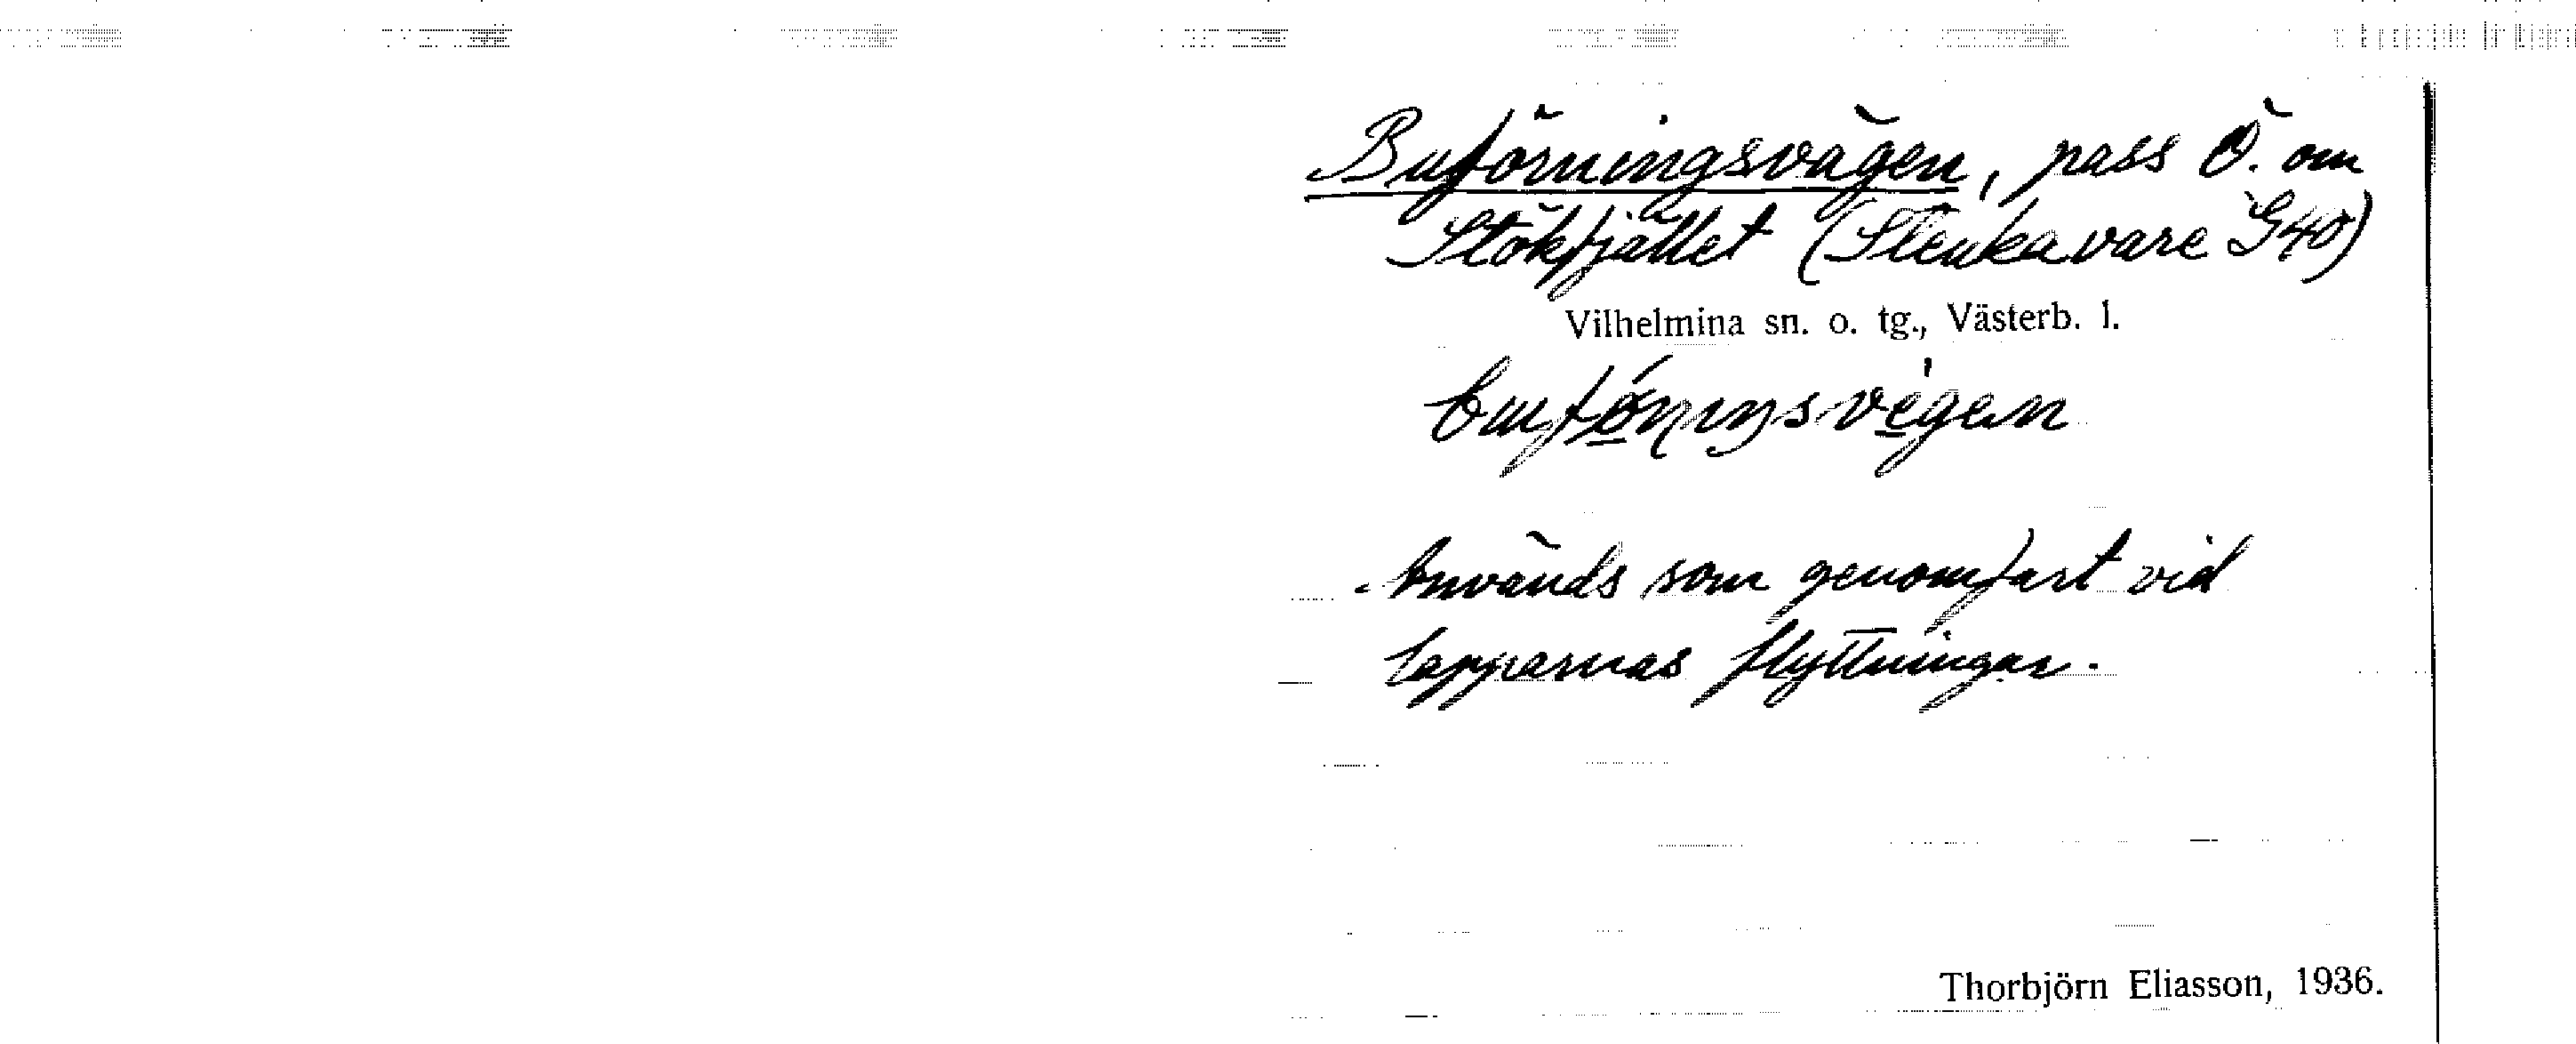 Buföringsvägen, pass Ö. om
Stökfjället (Steukavare G40)
Vilhelmina sn. o. tg., Västerb. l.
Används som genomfart vid
lapparnas flyttningar.
Thorbjörn Eliasson, 1936.